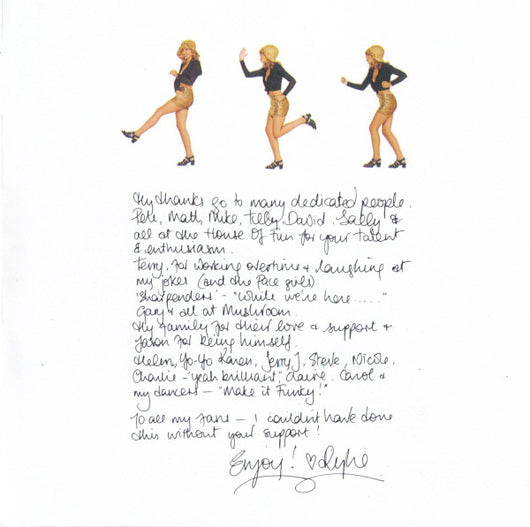 My thanks go to many dedicated people.
Pete, Matt, Mike, Filby, David. Sally &
all at the House Of Fun for your talent
& enthusiasm.
Terry. For working overtime & laughing at
my jokes (and the Pace girls)
'Sharpenders' - "While we're here....."
Gary & all at Mushroom.
My family for their love & support &
Jason for being himself.
Helen, Yo-Yo Karen, Jerry J. Steve, Nicole.
Charlie - "yeah brilliant", Laurie. Carol &
my dancers - "Make it Funky!"
To all my fans - I couldn't have done
this without your support!
Enjoy! ♡ Kylie